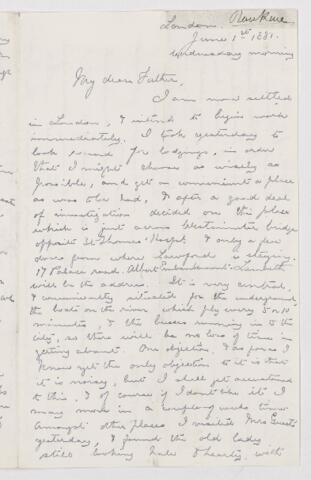 London.
June 1st 1881.
Wednesday morning
My dear Father,
I am now settled
in London, & intend to begin work
immediately. I took yesterday to
look round for lodgings, in order
that I might choose as wisely as
possible, and get as convenient a place
as was to be had, & after a good deal
of investigation decided on this place
which is just across Westminster bridge
opposite St Thomas's Hospl, & only a few
doors from where Lawford is staying.
17 Palace road. Albert Embankment. Lambeth
will be the address. It is very central,
& conveniently situated for the underground,
the boats on the river, which ply every 5 or 10
minutes, & the busses running in to the
city, so there will be no loss of time in
getting about. One objection, & as far as I
know yet the only objection to it is that
it is noisy, but I shall get accustomed
to this, & of course if I don't like it I
may move in a couple of weeks time.
Amongst other places I visited Mrs Guest's
yesterday, & found the old lady
still looking hale & hearty, with